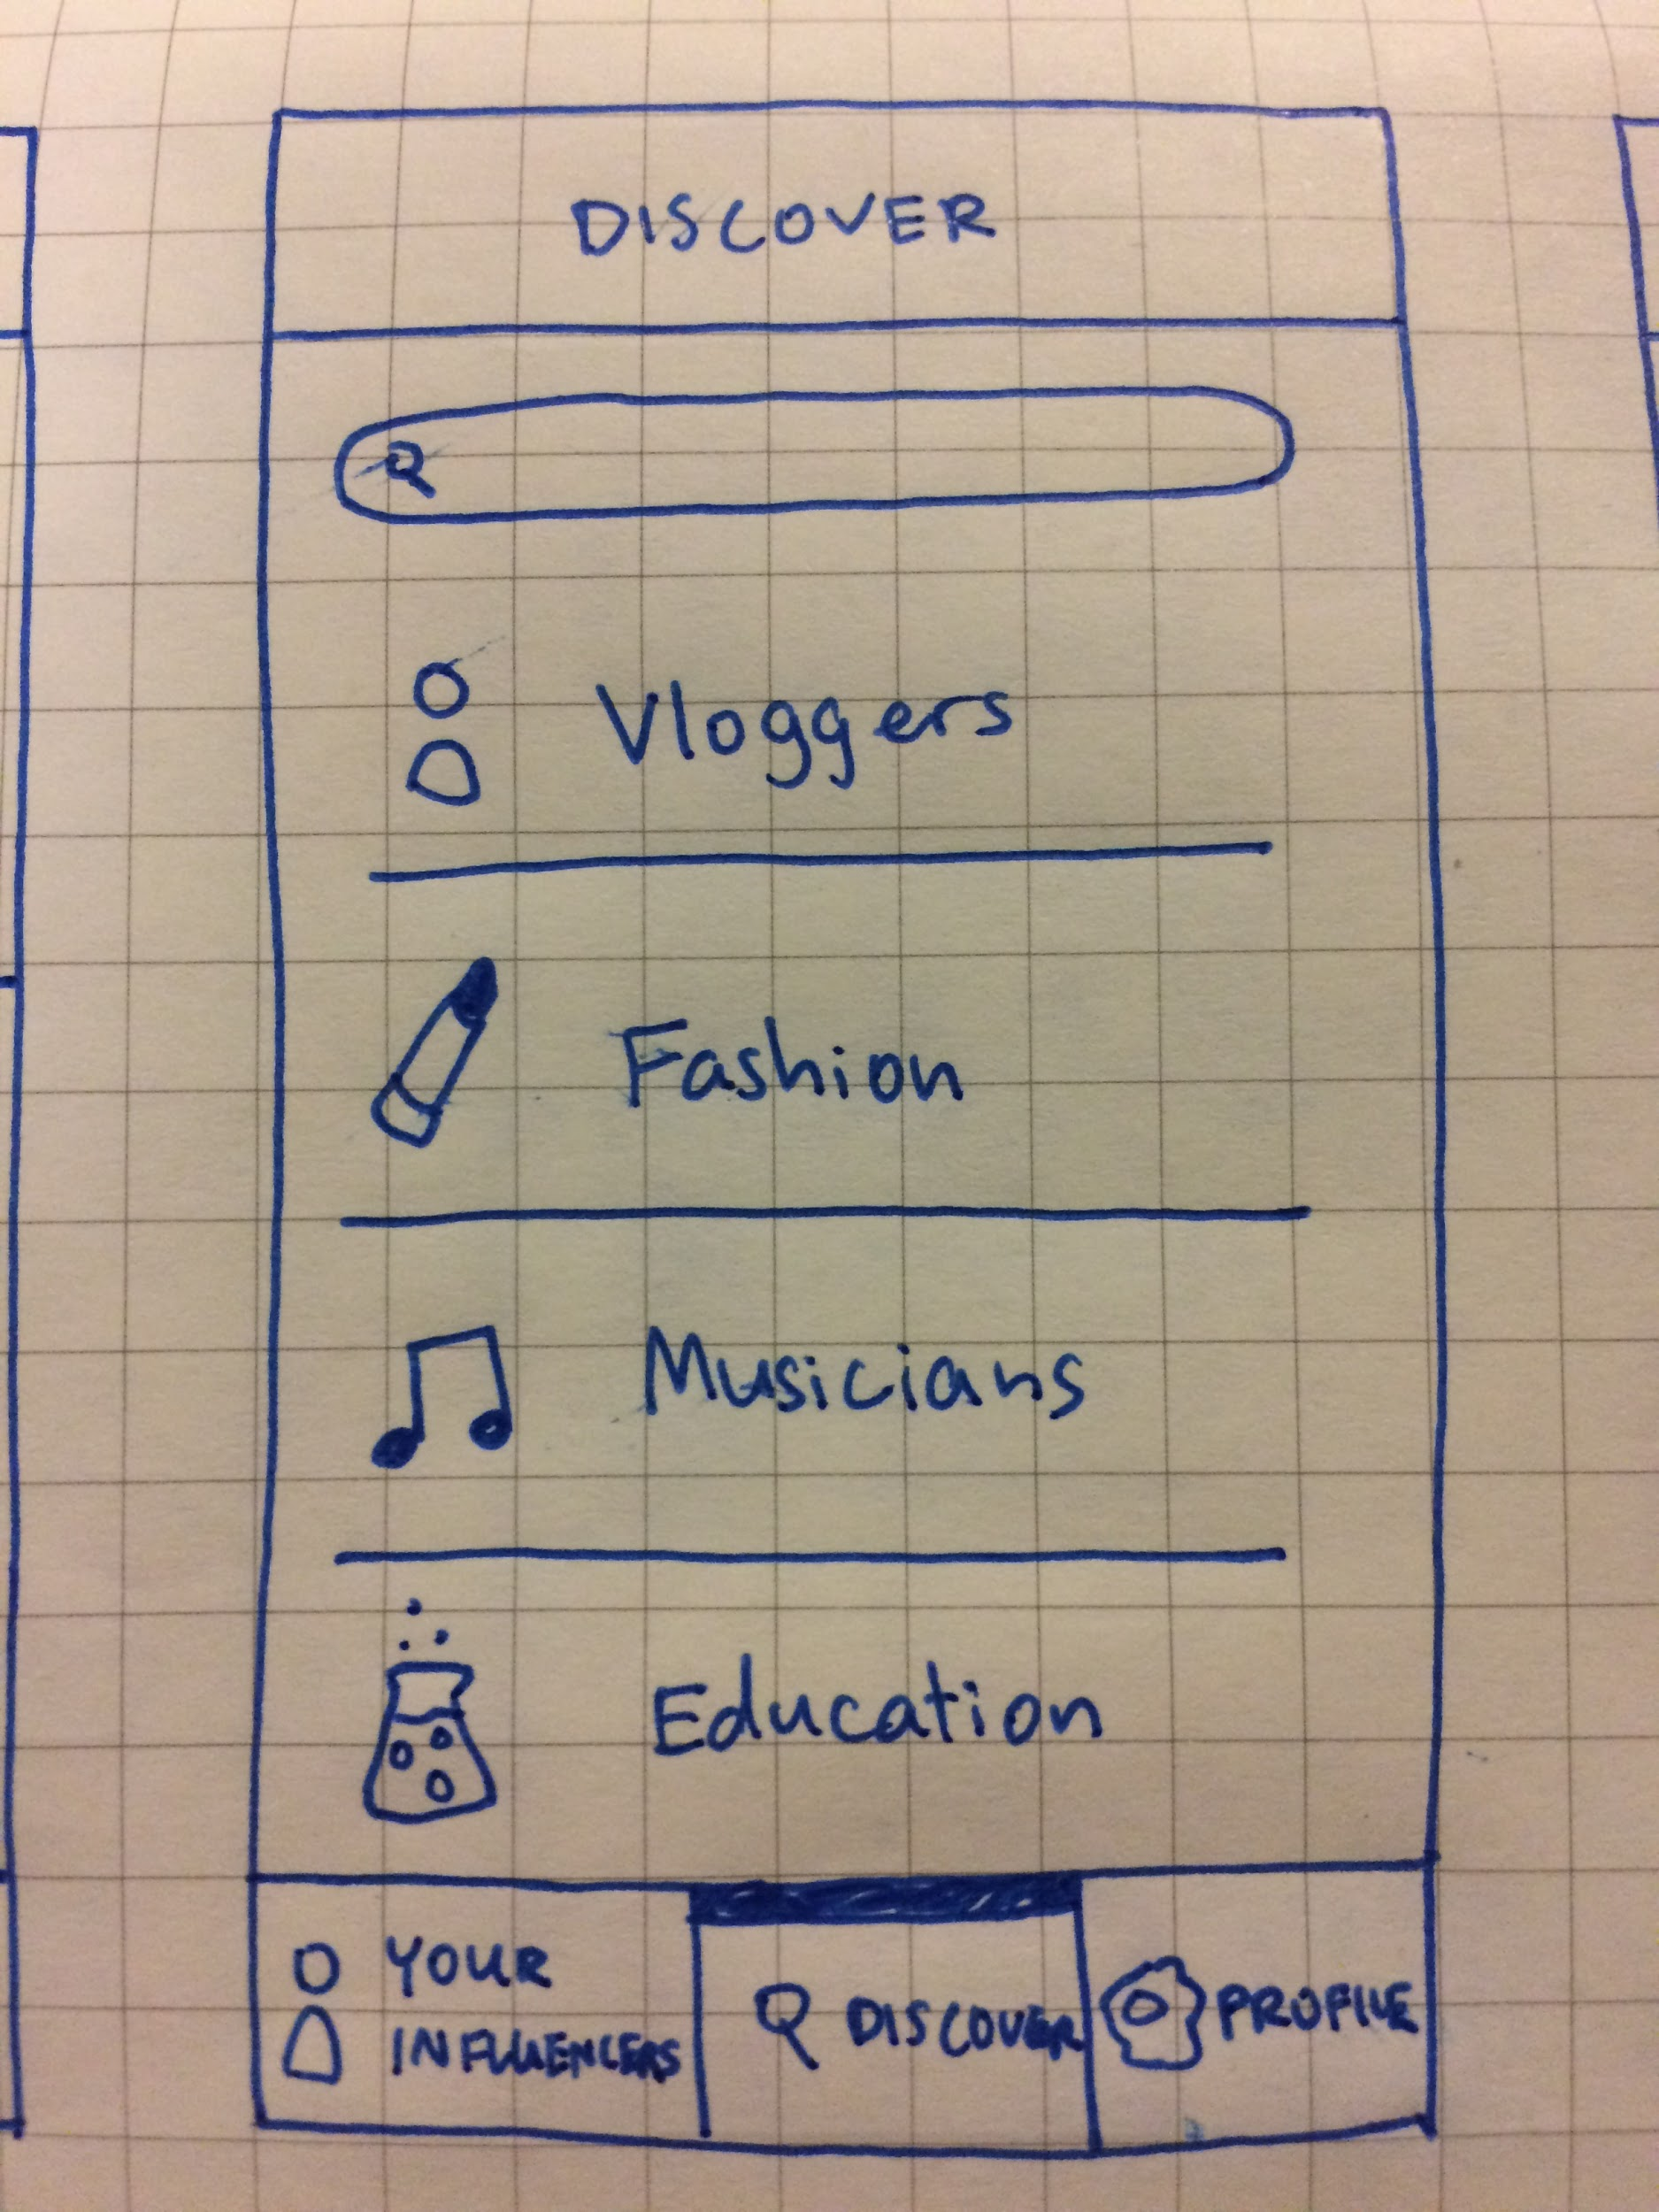 DISCOVER
Vloggers
Fashion
Musicians
Education
YOUR
INFLUENCERS
DISCOVER
PROFILE